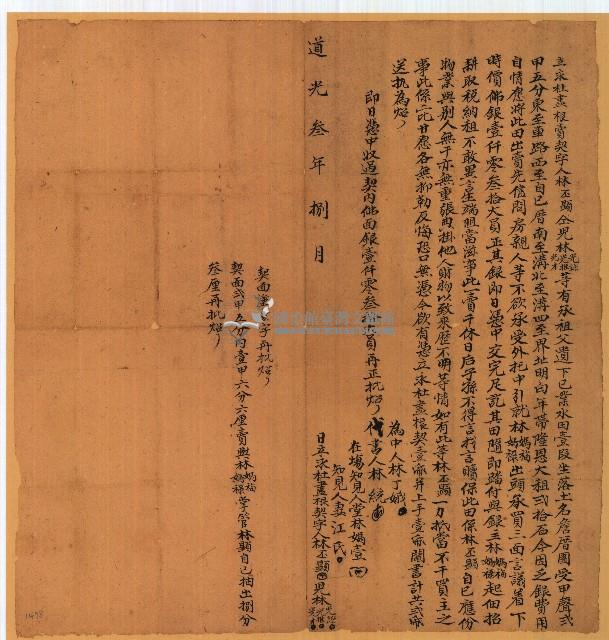 立永杜盡根賣契字人林丕顯仝兒林等有承祖父遺下已業水田壹段坐落土名詹厝園受甲聲弍
甲五分東至車路西至自己厝南至溝北至溝四至界址明白年帶隆恩大租弍拾石今因乏銀費用
自情愿將此田出賣先儘問房親人等不欲承受外托中引就林媽福媽祿出頭承買三面言議着下
時價佛銀壹仟零叁拾大員正其銀即日憑中交完足訖其田隨即踏付與銀主林媽福媽祿起佃招
耕取稅納租不敢異言生端阻當滋事此一賣千休日后子孫不得言找言贖保此田係林丕顯自己應份
物業與別人無干亦無重張典掛他人財物以致來歷不明等情如有此等林丕顯一力抵當不干買主之
事此係二比甘愿各無抑勒反悔恐口無憑今欲有憑立永杜盡根契壹帋并上手壹帋鬮書計共弍帋
送执為炤
即日憑中收過契內佛面銀壹仟零叁拾大員再正批炤
為中人林丁娥
代書人林統
在場知見人堂林媽壹
知見人妻江氏
道光叁年捌月 日立永杜盡根契字人林丕顯 兒林
契面 字再批炤
契面弍甲五分內壹甲六分六厘賣與林媽福媽祿掌管林顯自己抽出捌分
叁厘再批炤
1498